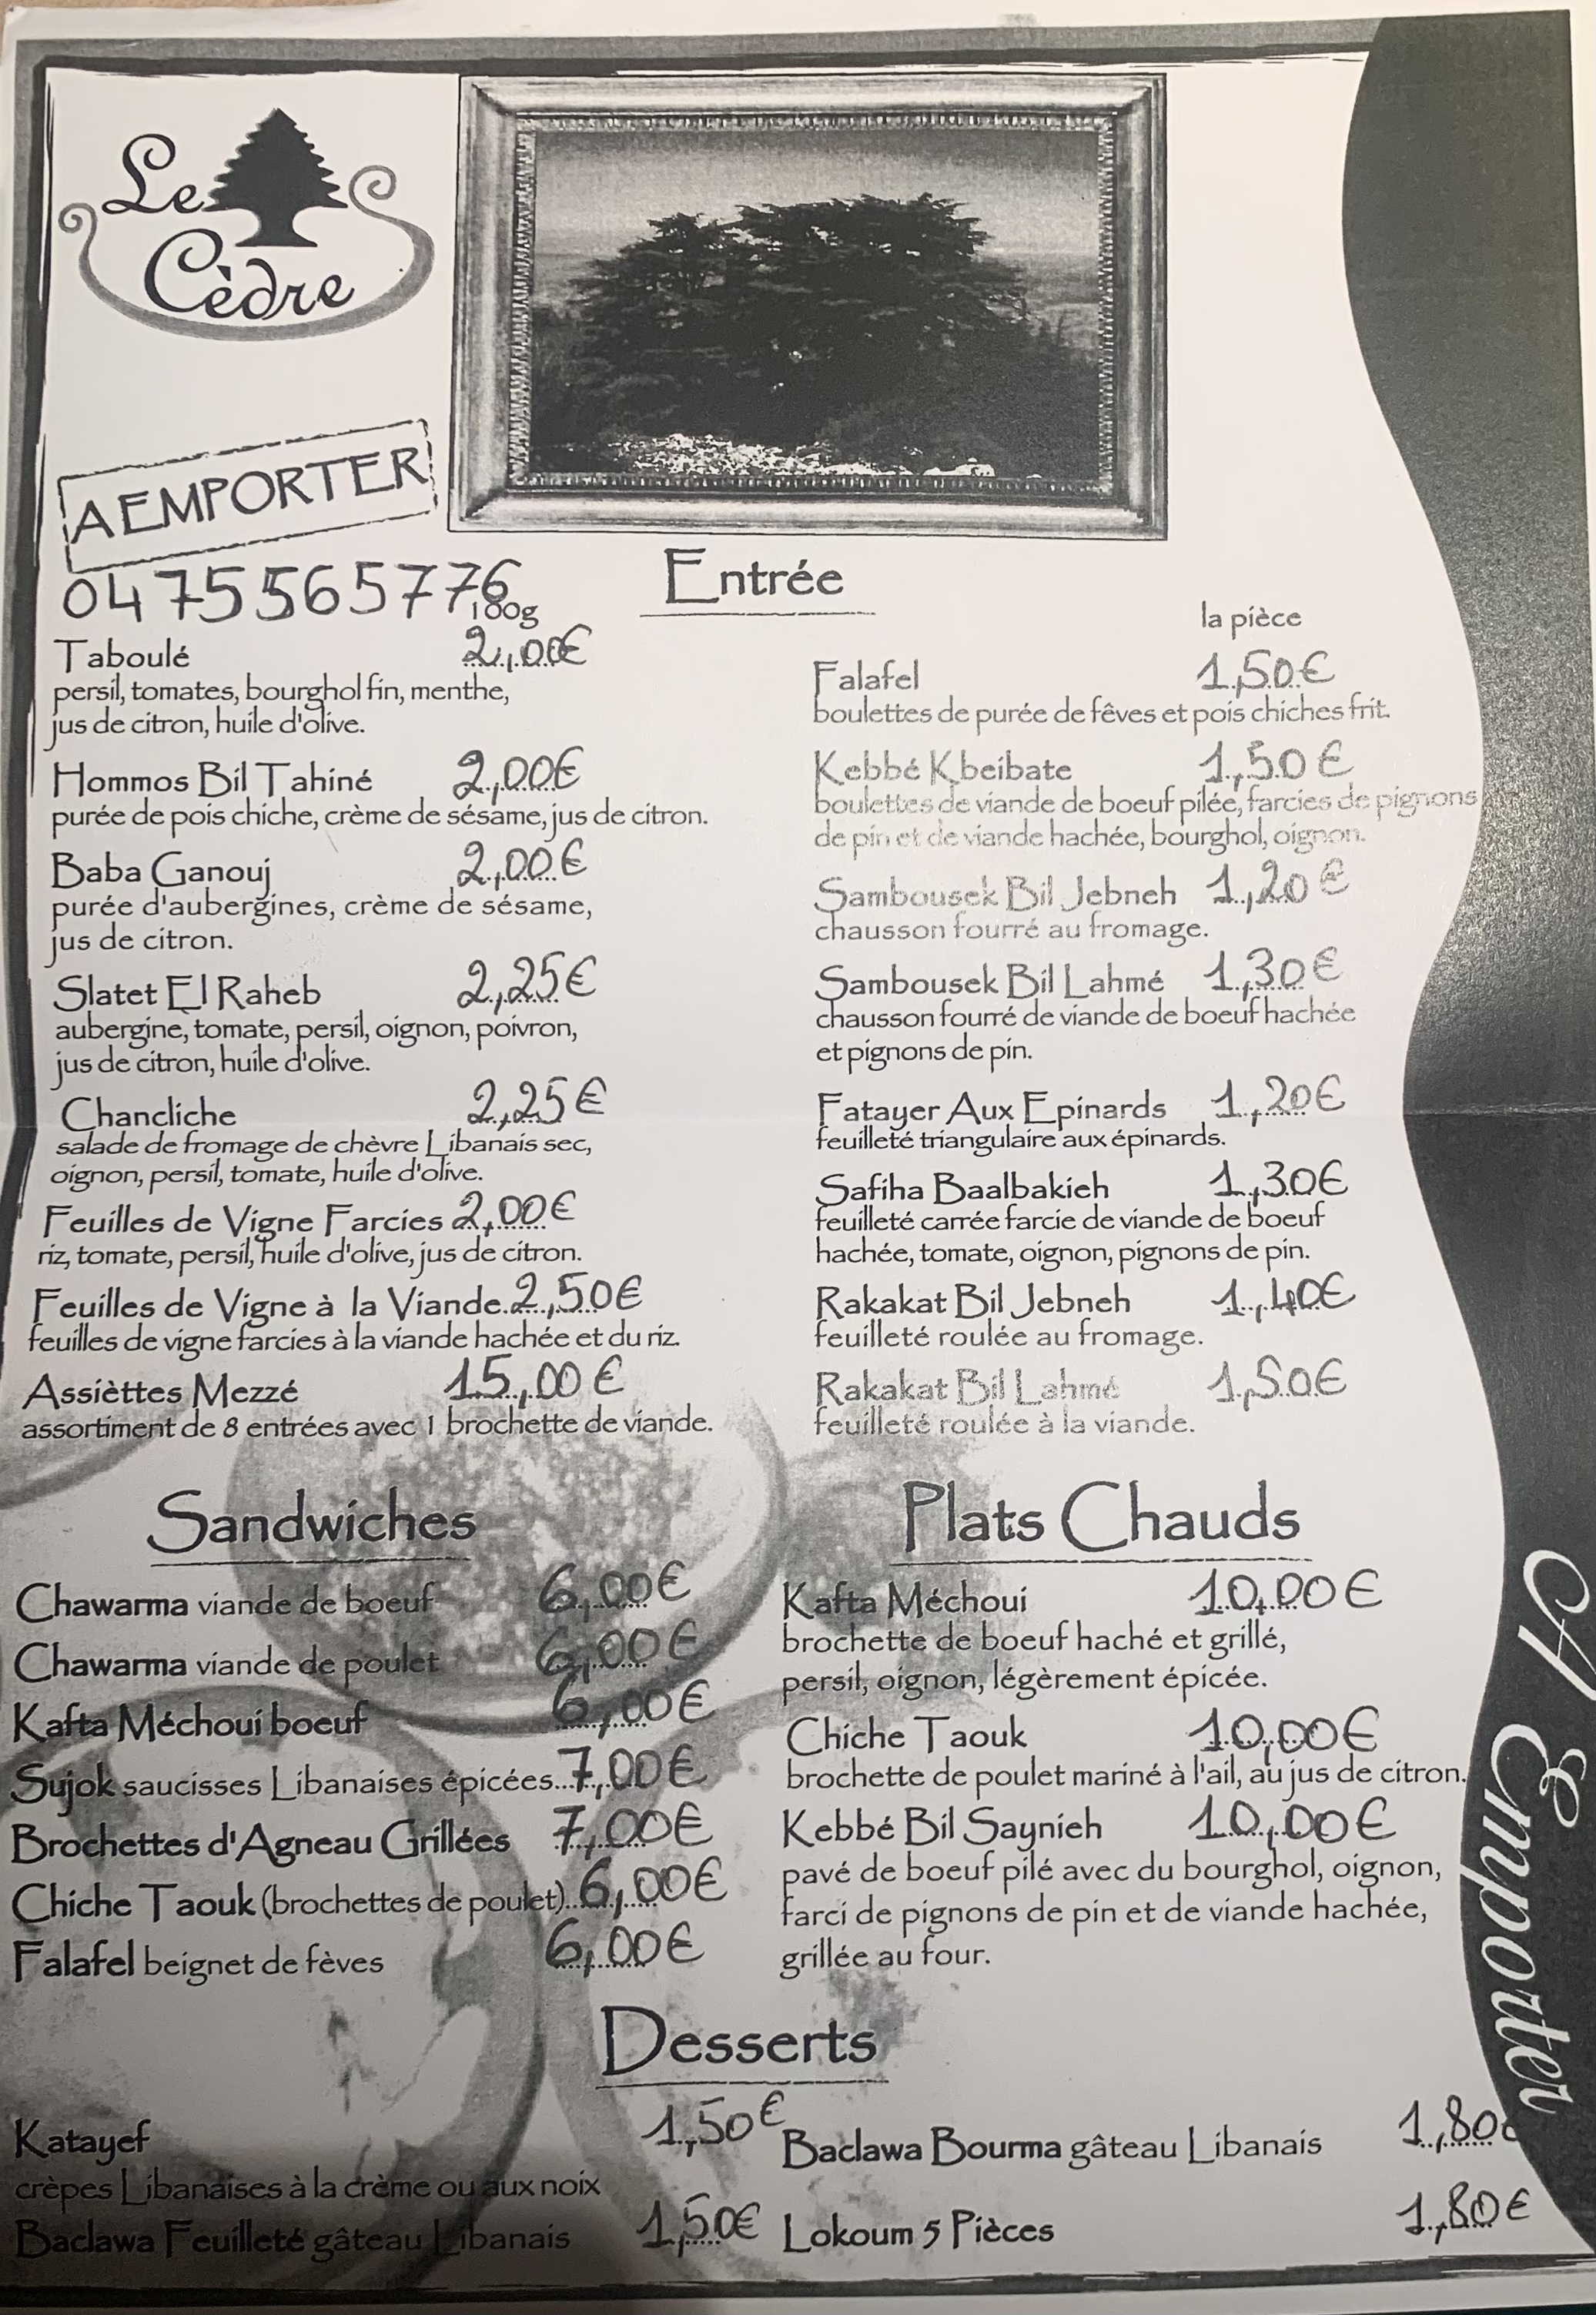 Le
Cèdre
A EMPORTER
0475565776
Entrée
100g
Taboulé 2,00€
persil, tomates, bourghol fin, menthe,
jus de citron, huile d'olive.
Hommos Bil Tahiné 2,00€
purée de pois chiche, crème de sésame, jus de citron.
Baba Ganouj 2,00€
purée d'aubergines, crème de sésame,
jus de citron.
Slatet El Raheb 2,25€
aubergine, tomate, persil, oignon, poivron,
jus de citron, huile d'olive.
Chancliche 2,25€
salade de fromage de chèvre Libanais sec,
oignon, persil, tomate, huile d'olive.
Feuilles de Vigne Farcies 2,00€
riz, tomate, persil, huile d'olive, jus de citron.
Feuilles de Vigne à la Viande 2,50€
feuilles de vigne farcies à la viande hachée et du riz.
Assièttes Mezzé 15,00€
assortiment de 8 entrées avec 1 brochette de viande.
la pièce
Falafel 1,50€
boulettes de purée de fêves et pois chiches frit.
Kebbé Kbeibate 1,50€
boulettes de viande de boeuf pilée, farcies de pignons
de pin et de viande hachée, bourghol, oignon.
Sambousek Bil Jebneh 1,20€
chausson fourré au fromage.
Sambousek Bil Lahmé 1,30€
chausson fourré de viande de boeuf hachée
et pignons de pin.
Fatayer Aux Epinards 1,20€
feuilleté triangulaire aux épinards.
Safiha Baalbakieh 1,30€
feuilleté carrée farcie de viande de boeuf
hachée, tomate, oignon, pignons de pin.
Rakakat Bil Jebneh 1,40€
feuilleté roulée au fromage.
Rakakat Bil Lahmé 1,50€
feuilleté roulée à la viande.
Sandwiches
Chawarma viande de boeuf 6,00€
Chawarma viande de poulet 6,00€
Kafta Méchoui boeuf 6,00€
Sujok saucisses Libanaises épicées...7,00€
Brochettes d'Agneau Grillées 7,00€
Chiche Taouk (brochettes de poulet)...6,00€
Falafel beignet de fèves 6,00€
Plats Chauds
Kafta Méchoui 10,00€
brochette de boeuf haché et grillé,
persil, oignon, légèrement épicée.
Chiche Taouk 10,00€
brochette de poulet mariné à l'ail, au jus de citron.
Kebbé Bil Saynieh 10,00€
pavé de boeuf pilé avec du bourghol, oignon,
farci de pignons de pin et de viande hachée,
grillée au four.
Desserts
Katayef 1,50€
crèpes Libanaises à la crème ou aux noix
Baclawa Feuilleté gâteau Libanais 1,50€
Baclawa Bourma gâteau Libanais 1,80€
Lokoum 5 Pièces 1,80€
A Emporter